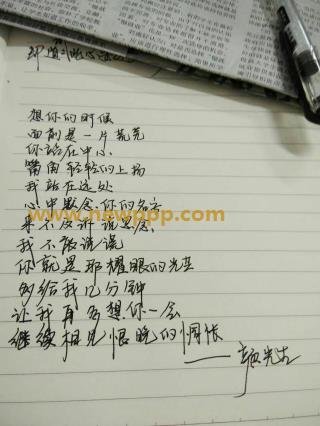 想你的时候
面前是一片荒芜
你站在中心
嘴角轻轻的上扬
我站在远处
心中默念你的名字
来不及诉说思念
我不敢说谎
你就是那耀眼的光芒
多给我几分钟
让我再多想你一会
继续相见恨晚的惆怅
www.newppp.com